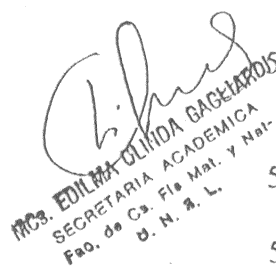 MCs. EDILMA OLINDA GAGLIARDI
SECRETARIA ACADEMICA
Fac. de Cs. Fis Mat. y Nat-
U. N. S. L.
5
5